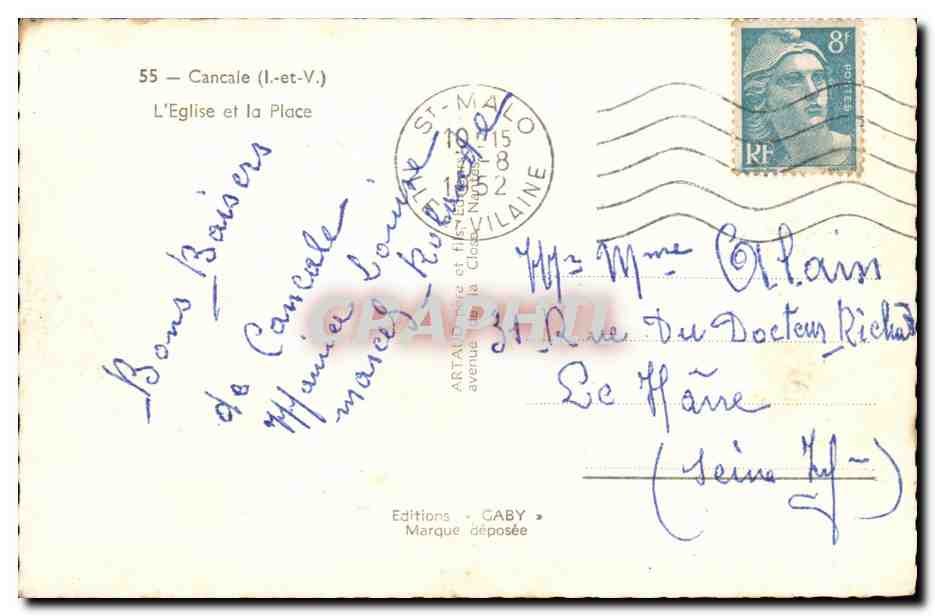 55 — Cancale (I.-et-V.)
L'Eglise et la Place
ST-MALO
ILLE VILAINE
8f
POSTES
RF
Bons Baisers
de Cancale
Maria Louise
marcel
ARTAUD père et fils
avenue de la Close, Nantes
Mr Mme Alain
31 Rue Du Docteur Richard
Le Hâvre
(Seine Inf
GRAPHTI
Editions « GABY »
Marque déposée